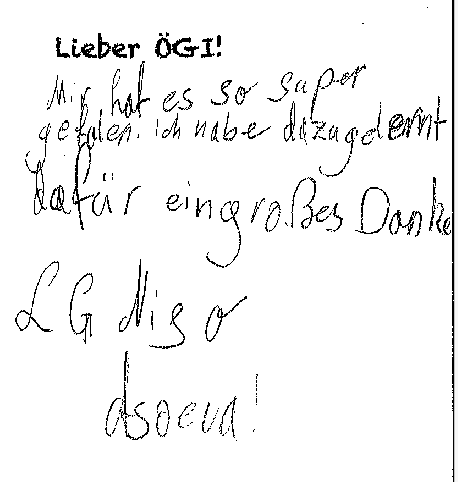 Lieber ÖGI!
Mir hat es so super
gefalen. ich habe dazugelernt
Dafür ein großes Danke
LG